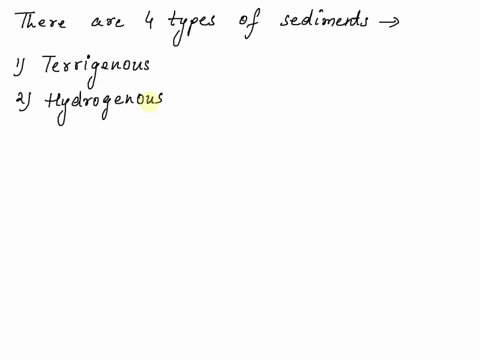 There are 4 types of sediments →
1) Terrigenous
2) Hydrogenous